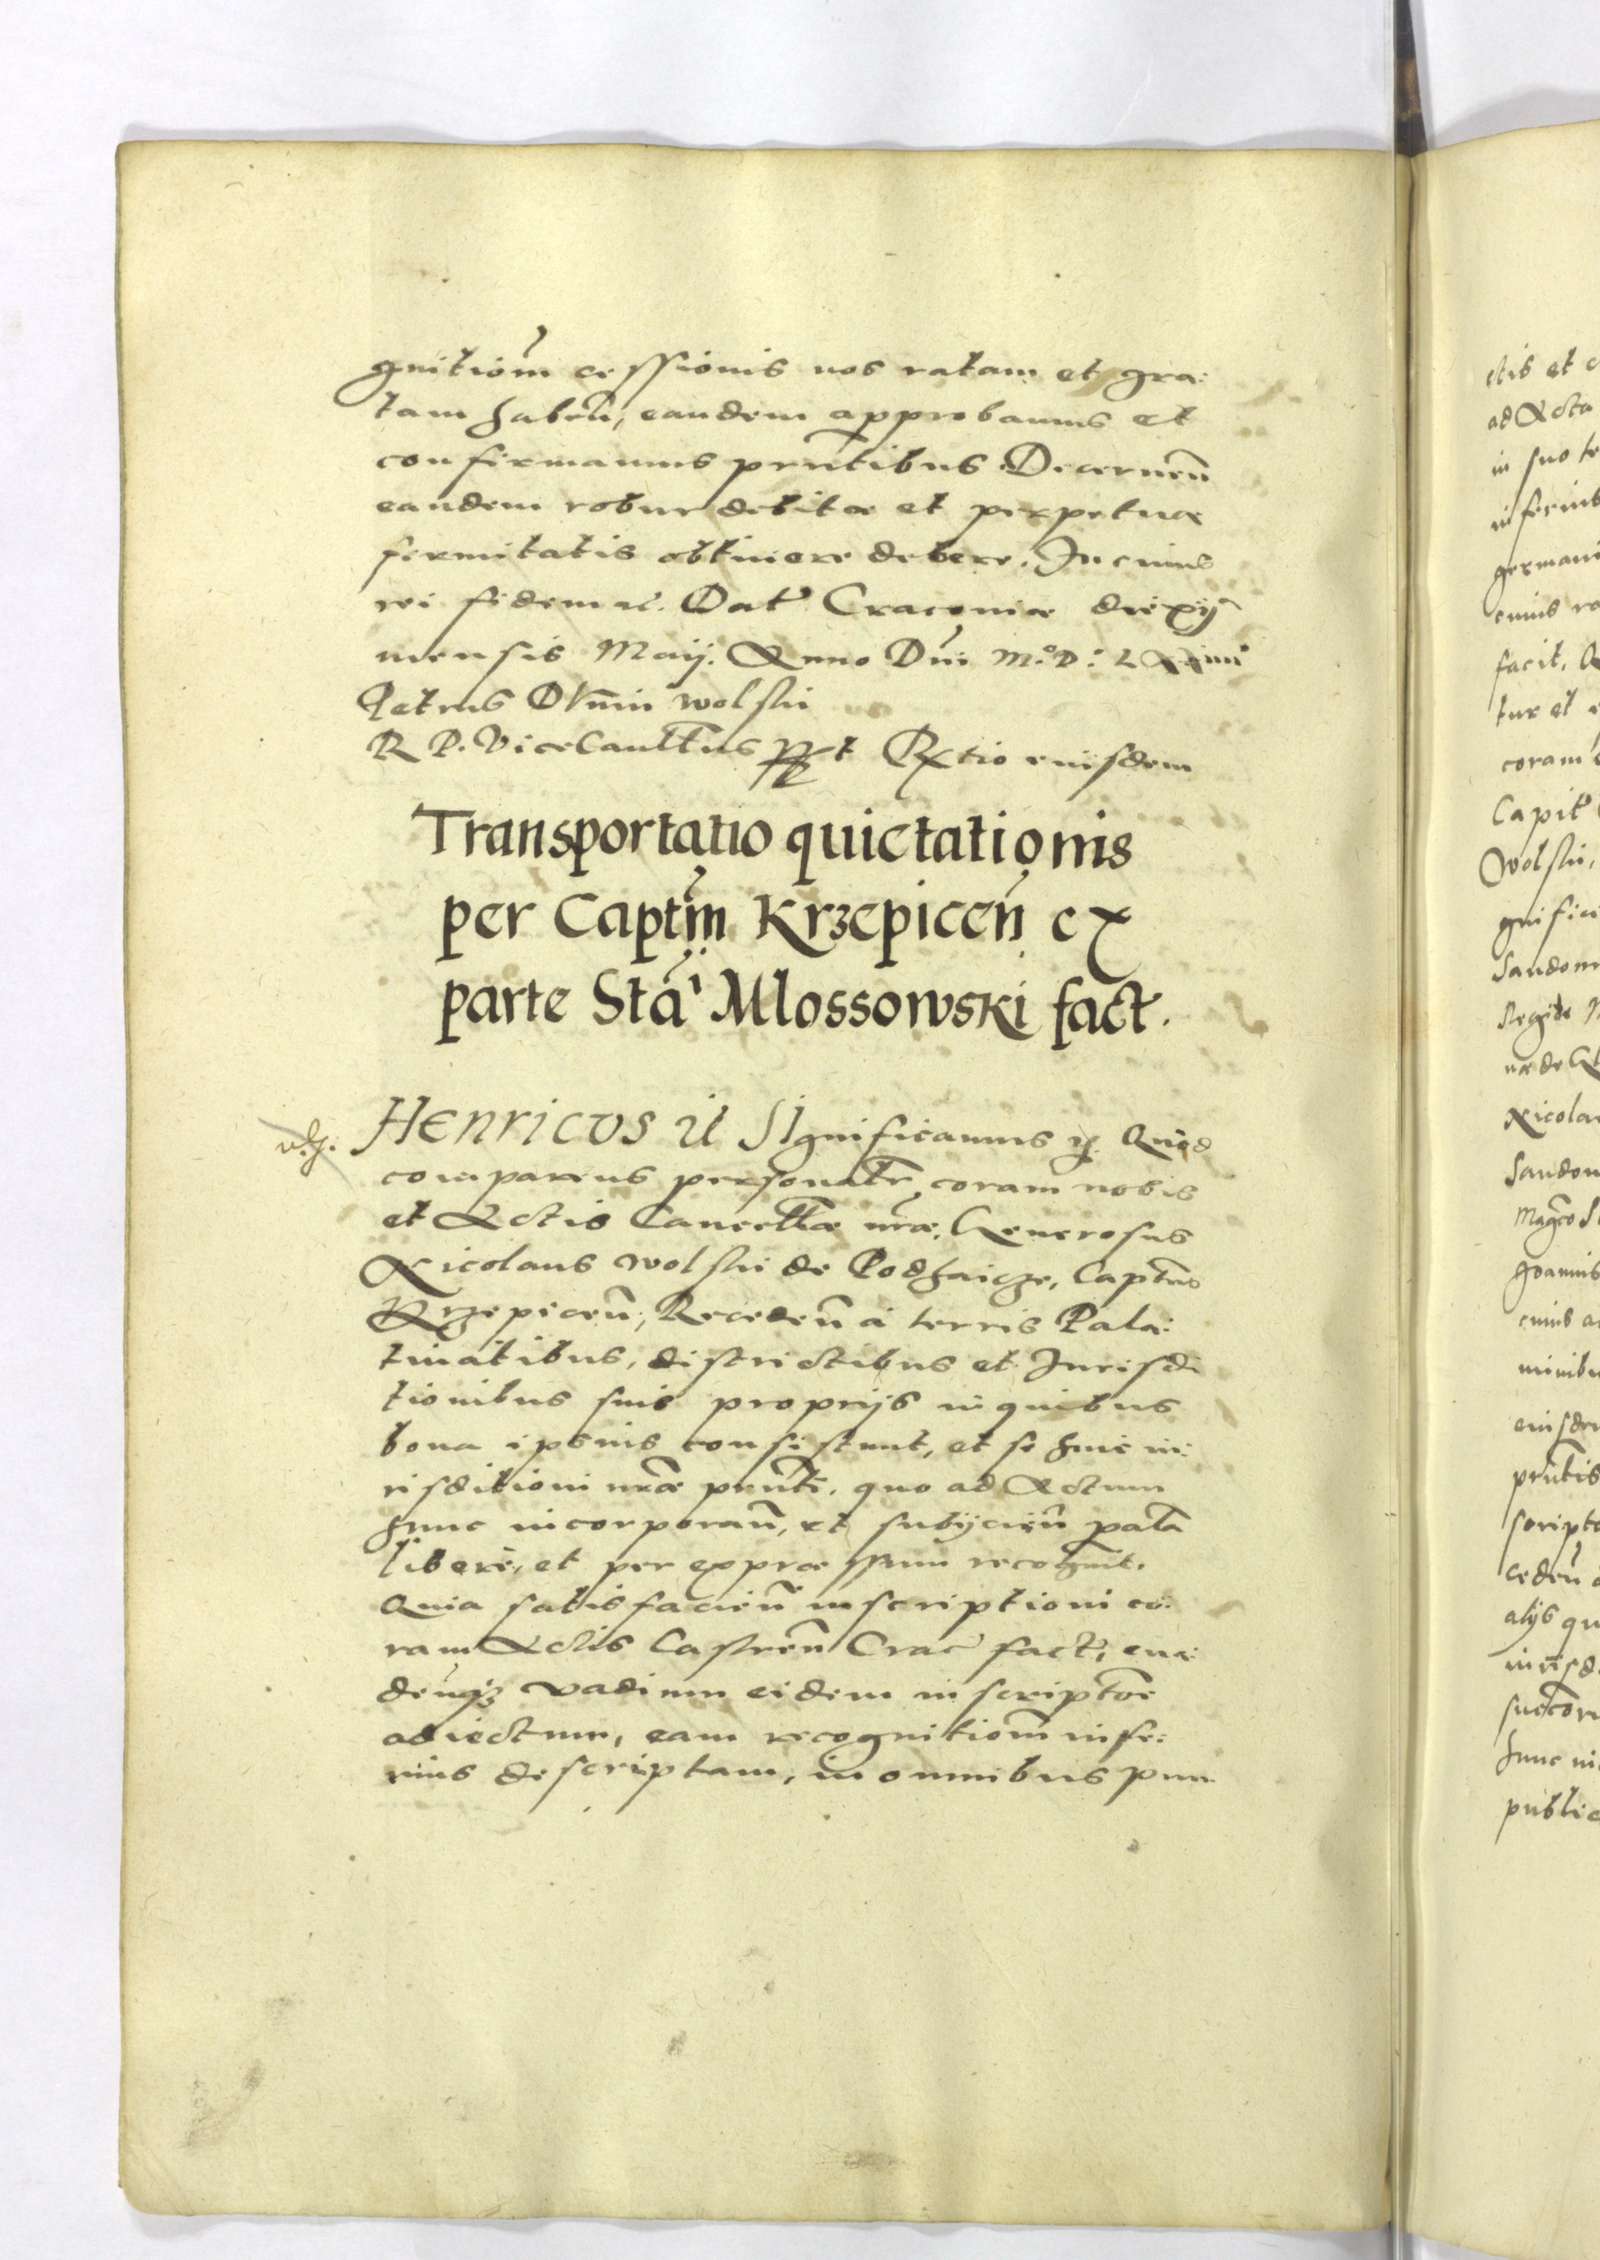 gnitiom̃ cessionis nos ratam et gra:
tam haben̄, eandem approbamus et
confirmamus prn̄tibus. Decernen̄
eandem robur debitæ et perpetuæ
firmitatis obtinere debere. In cuius
rei fidem etc. Dat̃ Cracoviæ die xij
mensis Maij. Anno Dn̄i M.º D.º LXXiiii
Petrus Dunin Wolski
R. P. Vicecancell̃us sspt R̃tio eiusdem
Transportatio quietationis
per Captm̃ Krzepicen̄ ex
parte Stai̇̃ Mlossowski fact.
HENRICVS etc Significamus etc. Quod
comparens personalr̃ coram nobis
et Actis Cancell̃æ nr̃æ, Generosus
Nicolaus Wolski de Podhaicze, Captn̄s
Krzepicen̄; Receden̄ à terris Pala:
tinatibus, districtibus et Iurisdi
tionibus suis proprijs in quibus
bona ipsius consistunt, et se huic iu:
risditioni nr̃æ prn̄ti, quo ad Actum
hunc incorporan̄, et subijcien̄ palã
liberè, et per expræssum recognit.
Quia satisfacien̄ inscriptioni co:
ram Actis Castren̄ Crac̃ fact̃, eva:
den̄qȝ vadium eidem inscriptõe
adiectum, eam recognitiom̃ infe:
rius descriptam, in omnibus pun
ctis et
ad Acta
in suo te
germani
cuius ro
facit,
tur et
coram
Capit̃
Wolski,
gnifici
Sandom
Nicolau
Sandom
Mag̃co
cuius a
eiusdem
prn̄tis
script
ceden̄
alijs qu
iurisd
hunc in
public